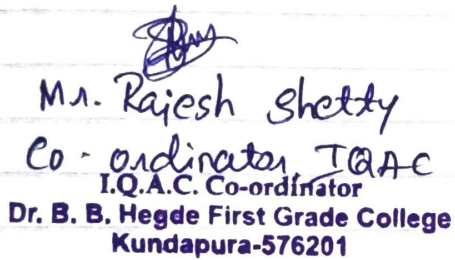 Mr. Rajesh Shetty
Co-ordinator IQAC
I.Q.A.C. Co-ordinator
Dr. B. B. Hegde First Grade College
Kundapura-576201